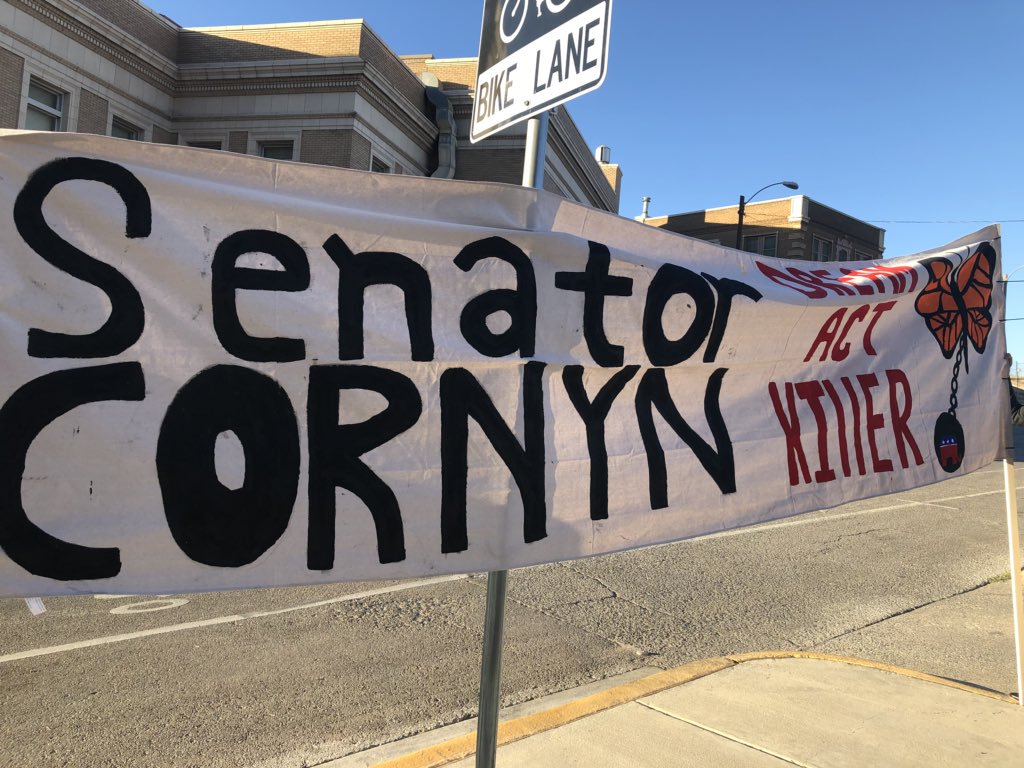 BIKE LANE
Senator
CORNYN
DREAM
ACT
KIllER